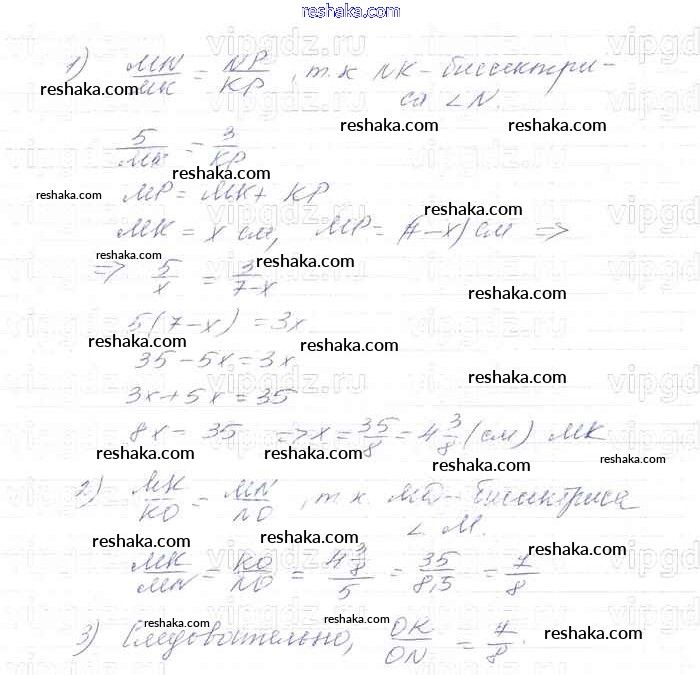 reshaka.com
1) MN/MK = NP/KP, т.к NK - биссектри-
reshaka.com
са ∠N.
reshaka.com
5/MK = 3/KP
reshaka.com
MP = MK + KP
reshaka.com
MK = x см, MP = (7-x) см ⇒
reshaka.com
reshaka.com
reshaka.com
⇒ 5/x = 3/(7-x)
reshaka.com
5(7-x) = 3x
reshaka.com
reshaka.com
35 - 5x = 3x
reshaka.com
reshaka.com
3x + 5x = 35
8x = 35 ⇒ x = 35/8 = 4 3/8 (см) MK
reshaka.com
reshaka.com
reshaka.com
2) MK/KO = MN/NO, т.к. MO - биссектриса
∠ M.
reshaka.com
reshaka.com
reshaka.com
MK/MN = KO/NO = (4 3/8)/5 = 35/8,5 = 7/8
reshaka.com
reshaka.com
3) Следовательно, OK/ON = 7/8.
reshaka.com
reshaka.com
reshaka.com